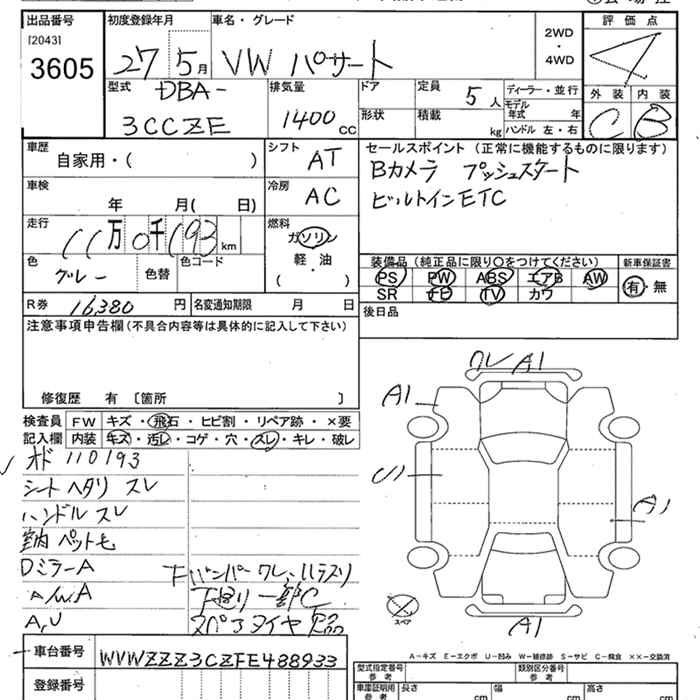 出品番号 初度登録年月 車名・グレード 評価点
[2043]
3605
27 5月 VW パサート 2WD・4WD 4
型式 DBA-
3CCZE
排気量 1400 CC
ドア 形状
定員 5人
積載 kg
ディーラー・並行
モデル年式 年
ハンドル 左・右
外装 内装
C B
車歴 自家用・( )
シフト AT
セールスポイント (正常に機能するものに限ります)
Bカメラ プッシュスタート
ビルトインETC
車検 年 月( 日)
冷房 AC
走行 11万0千193 km
燃料 ガソリン
軽・油
( ・ )
色 グレー 色替 色コード
装備品 (純正品に限り○をつけてください) 新車保証書
PS PW ABS エアB AW 有・無
SR ナビ TV カワ
R券 16,380円 名変通知期限 月 日
後日品
注意事項申告欄(不具合内容等は具体的に記入して下さい)
修復歴 有 〔箇所 〕
検査員 FW キズ・飛石・ヒビ割・リペア跡・×要
記入欄 内装 キズ・汚レ・コゲ・穴・スレ・キレ・破レ
オド 110193
シートヘタリ スレ
ハンドル スレ
室内 ペット毛
DミラーA
A,U
下廻り一部C
スペアタイヤ欠品
ワレ A1
A1
U1
A1
A1
スペア
A-キズ E-エクボ U-凹み W-補修跡 S-サビ C-腐食 ××-交換済
車台番号 WVWZZZ3CZFE488933
登録番号
型式指定番号 参考 類別区分番号 参考
車庫証明用 参考 長さ cm 幅 cm 高さ cm